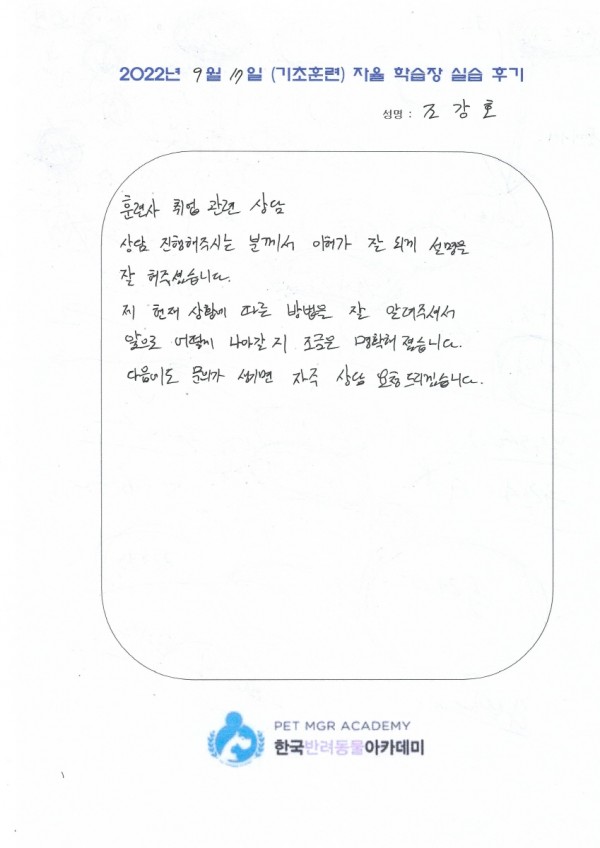 2022년 9월 17일 (기초훈련) 자율 학습장 실습 후기
성명 : 조강호
훈련사 취업 관련 상담
상담 진행해주시는 분께서 이해가 잘 되게 설명을
잘 해주셨습니다.
제 현재 상황에 따른 방법을 잘 알려주셔서
앞으로 어떻게 나아갈 지 조금은 명확해졌습니다.
다음에도 문의가 생기면 자주 상담 요청드리겠습니다.
PET MGR ACADEMY
한국반려동물아카데미